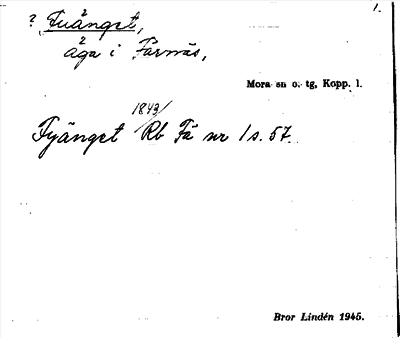 1.
? Fuänget,
äga i Färnäs,
Mora sn o. tg, Kopp. l.
1843/
Fyänget Rb Fä nr 1 s. 57.
Bror Lindén 1945.